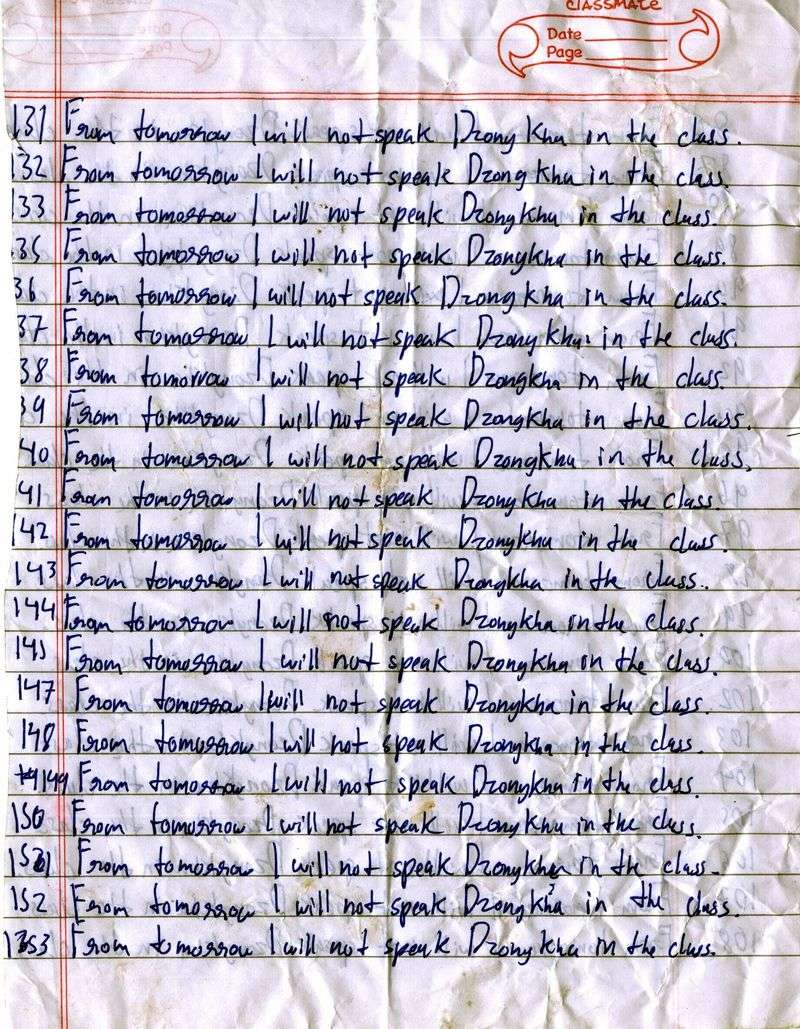 CLASSMATE
Date
Page
131 From tomorrow I will not speak Dzongkha in the class.
132 From tomorrow I will not speak Dzongkha in the class.
133 From tomorrow I will not speak Dzongkha in the class.
35 From tomorrow I will not speak Dzongkha in the class.
36 From tomorrow I will not speak Dzongkha in the class.
37 From tomorrow I will not speak Dzongkha in the class.
38 From tomorrow I will not speak Dzongkha in the class.
39 From tomorrow I will not speak Dzongkha in the class.
40 From tomorrow I will not speak Dzongkha in the class.
41 From tomorrow I will not speak Dzongkha in the class.
142 From tomorrow I will not speak Dzongkha in the class.
143 From tomorrow I will not speak Dzongkha in the class.
144 From tomorrow I will not speak Dzongkha in the class.
145 From tomorrow I will not speak Dzongkha in the class.
147 From tomorrow I will not speak Dzongkha in the class.
148 From tomorrow I will not speak Dzongkha in the class.
149 From tomorrow I will not speak Dzongkha in the class.
150 From tomorrow I will not speak Dzongkha in the class.
151 From tomorrow I will not speak Dzongkha in the class.
152 From tomorrow I will not speak Dzongkha in the class.
153 From tomorrow I will not speak Dzongkha in the class.